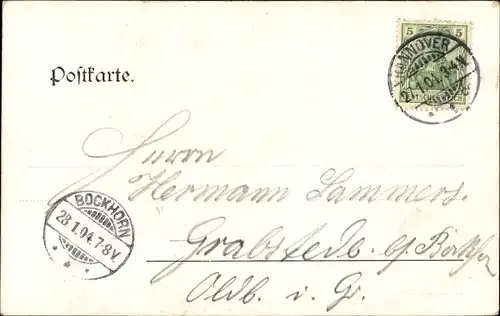 5 5
HANNOVER
27.1.04. 3-4N
Postkarte.
Herrn
Hermann Lammers.
BOCKHORN
28.1.04. 7-8V.
Grabstede. b/ Bockhorn
Oldb. i. Gr.